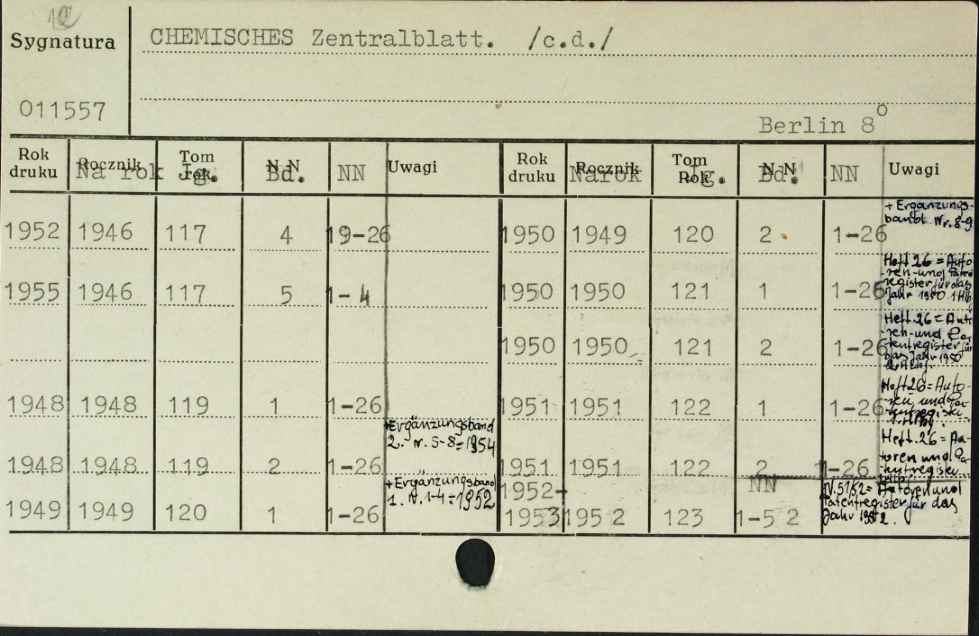 Sygnatura
CHEMISCHES Zentralblatt. /c.d./
011557
Berlin 8°
Rok druku Rocznik Na rok Tom Rok Jg. N.N. Bd. NN Uwagi Rok druku Rocznik Na rok Tom Rok Jg. N.N. Bd. NN Uwagi
1952 1946 117 4 19-26 1950 1949 120 2 1-26 + Ergänzungs-
band. Nr. 8-9
1955 1946 117 5 1-4 1950 1950 121 1 1-26 Heft 26 = Auto-
ren-und
register für das
Jahr 1950
1950 1950 121 2 1-26 Heft.26 = Aut
ren-und Pa
tentregister für
das Jahr 1950
1948 1948 119 1 1-26 1951 1951 122 1 1-26 Heft 26 = Auto-
ren, und Pa-
tentregist.
+Ergänzungsband
2. Nr. 5-8=1954
1948 1948 119 2 1-26 1951 1951 122 2 1-26 Heft.26 = Au-
toren und Pa-
+ Ergänzungsband
1. Nr. 1-4=1952
NN
1949 1949 120 1 1-26 1952-
1953 1952 123 1-52 N.51/52= Autoren und
Patentregister für das
Jahr 1952.